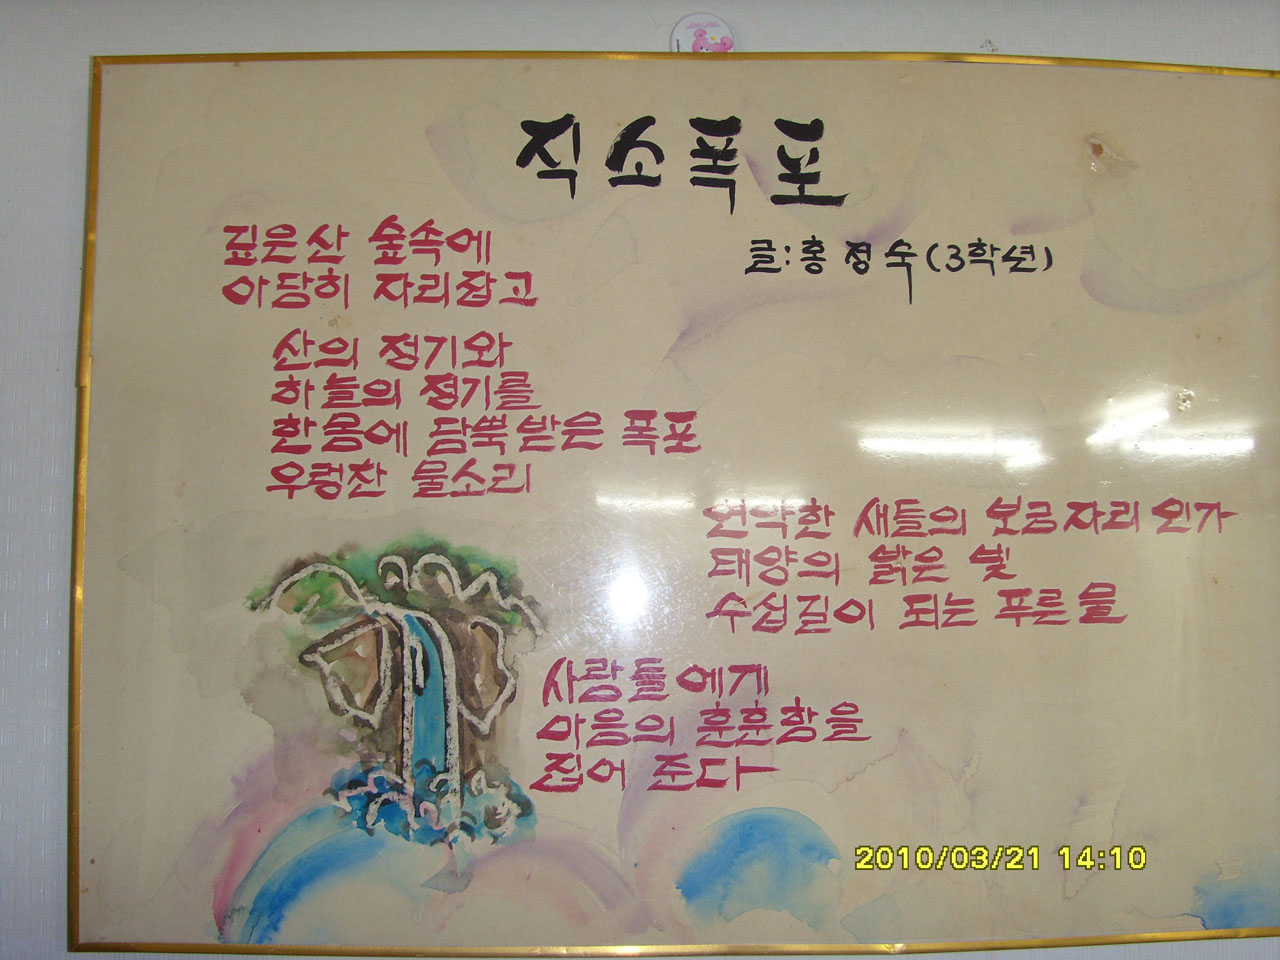 직소폭포
글:홍정숙(3학년)
깊은산 숲속에
아담히 자리잡고
산의 정기와
하늘의 정기를
한몸에 담뿍받은 폭포
우렁찬 물소리
연약한 새들의 보금자리 인가
태양의 밝은 빛
수십길이 되는 푸른물
사람들에게
마음의 훈훈함을
집어 준다
2010/03/21 14:10